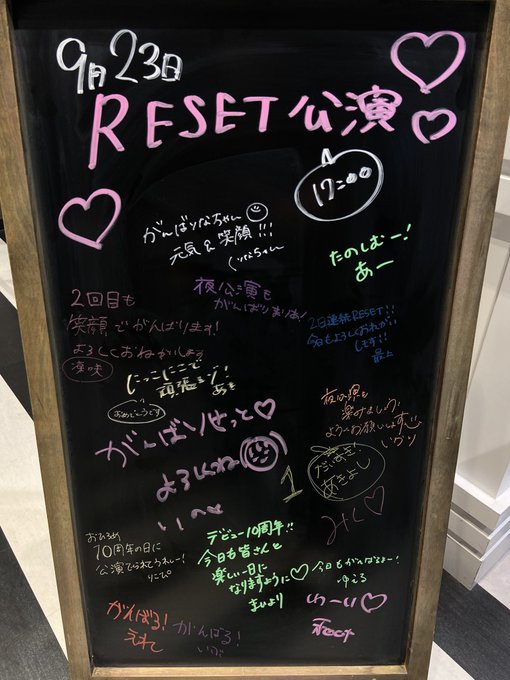 9月23日
RESET公演
17:00
がんばりなちゃん
元気&笑顔!!!
りなちゃん
たのしむー!
あー
夜公演も
がんばりまりあ!
2回目も
笑顔でがんばります!
よろしくおねがいします
2日連続RESET!!
今日もよろしくおねがい
します!!
最上
にっこにこで
頑張るぞ!
あき
おめでとうです
夜公演も
楽しみましょう!
よろしくお願いします
いづり
がんばりせっと♡
よろしくね
いへ〜
1
だいあき!
あきよし
みく♡
おひろめ
10周年の日に
公演でられてうれしー!
りこぴ
デビュー10周年!!
今日も皆さんと
楽しい一日に
なりますように♡
まひより
今日もがんばるよー!
ゆうる
わーい♡
がんばる!
えれな
がんばる!
いぶ